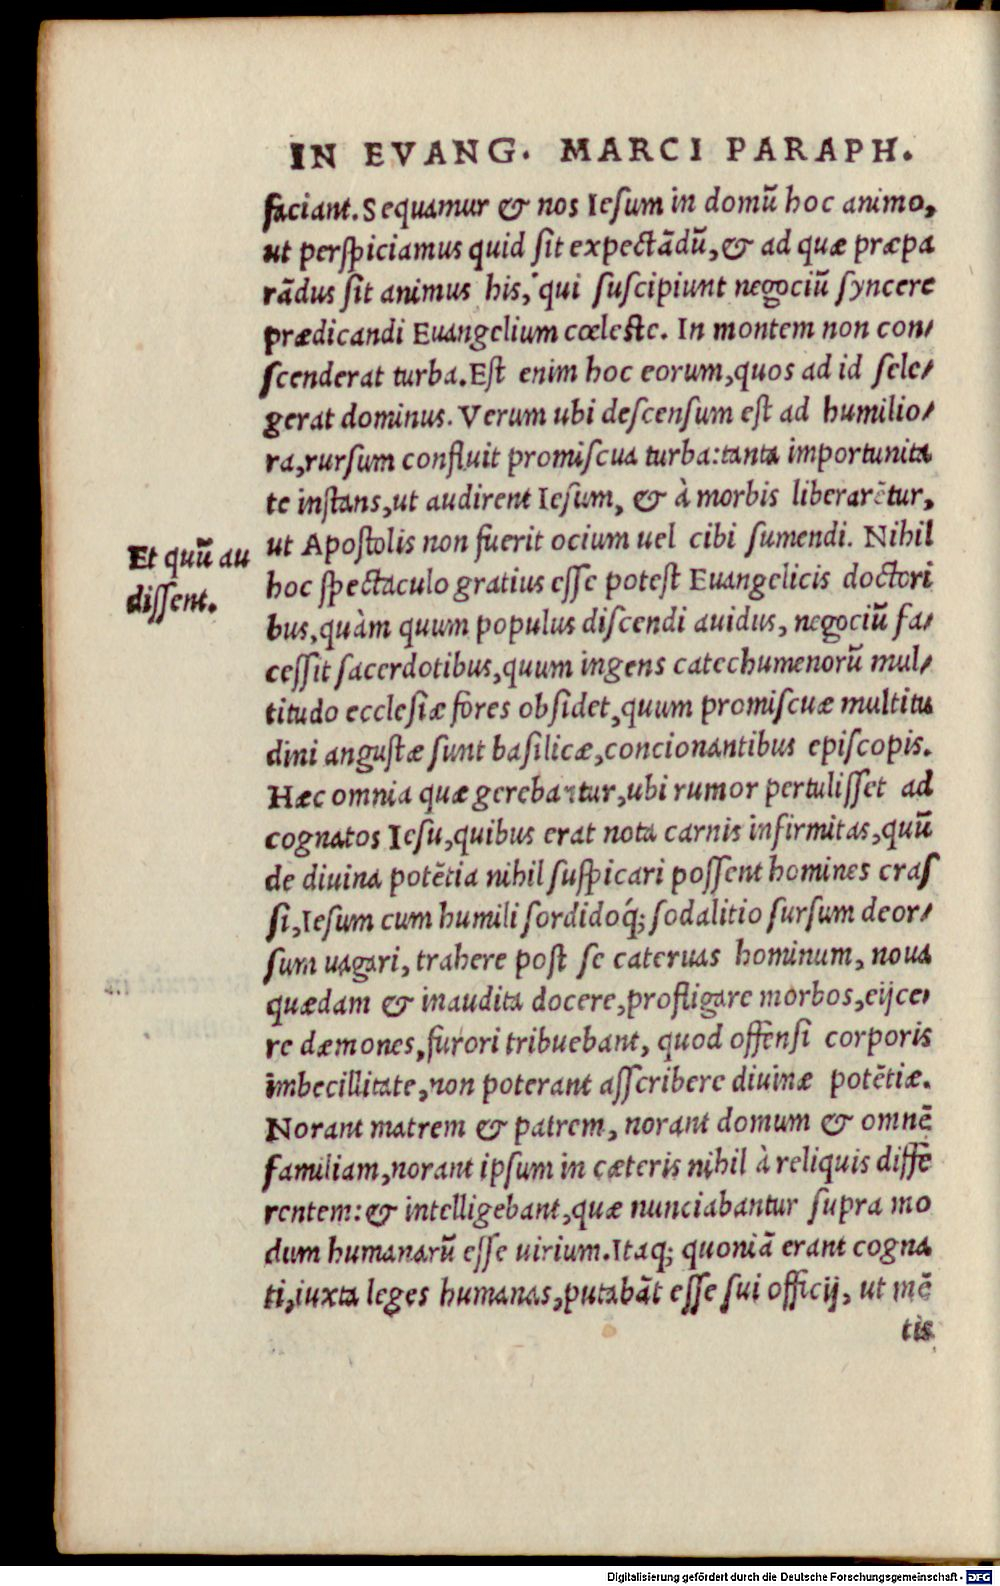 IN EVANG. MARCI PARAPH.
faciant. Sequamur & nos Iesum in domū hoc animo,
ut perspiciamus quid sit expectādū, & ad quæ præpa
rādus sit animus his, qui suscipiunt negociū syncere
prædicandi Euangelium cœleste. In montem non con/
scenderat turba. Est enim hoc eorum, quos ad id sele/
gerat dominus. Verum ubi descensum est ad humilio/
ra, rursum confluit promiscua turba: tanta importunita
te instans, ut audirent Iesum, & à morbis liberarētur,
ut Apostolis non fuerit ocium uel cibi sumendi. Nihil
hoc spectaculo gratius esse potest Euangelicis doctori
bus, quàm quum populus discendi auidus, negociū fa/
cessit sacerdotibus, quum ingens catechumenorū mul/
titudo ecclesiæ fores obsidet, quum promiscuæ multitu
dini angustæ sunt basilicæ, concionantibus episcopis.
Hæc omnia quæ gerebantur, ubi rumor pertulisset ad
cognatos Iesu, quibus erat nota carnis infirmitas, quū
de diuina potētia nihil suspicari possent homines cras
si, Iesum cum humili sordidoq́; sodalitio sursum deor/
sum uagari, trahere post se cateruas hominum, noua
quædam & inaudita docere, profligare morbos, eijce/
re dæmones, furori tribuebant, quod offensi corporis
imbecillitate, non poterant asscribere diuinæ potētiæ.
Norant matrem & patrem, norant domum & omnē
familiam, norant ipsum in cæteris nihil à reliquis diffe
rentem: & intelligebant, quæ nunciabantur supra mo
dum humanarū esse uirium. Itaq; quoniā erant cogna
ti, iuxta leges humanas, putabāt esse sui officij, ut mē
tis
Et quū au
dissent.
Digitalisierung gefördert durch die Deutsche Forschungsgemeinschaft - DFG